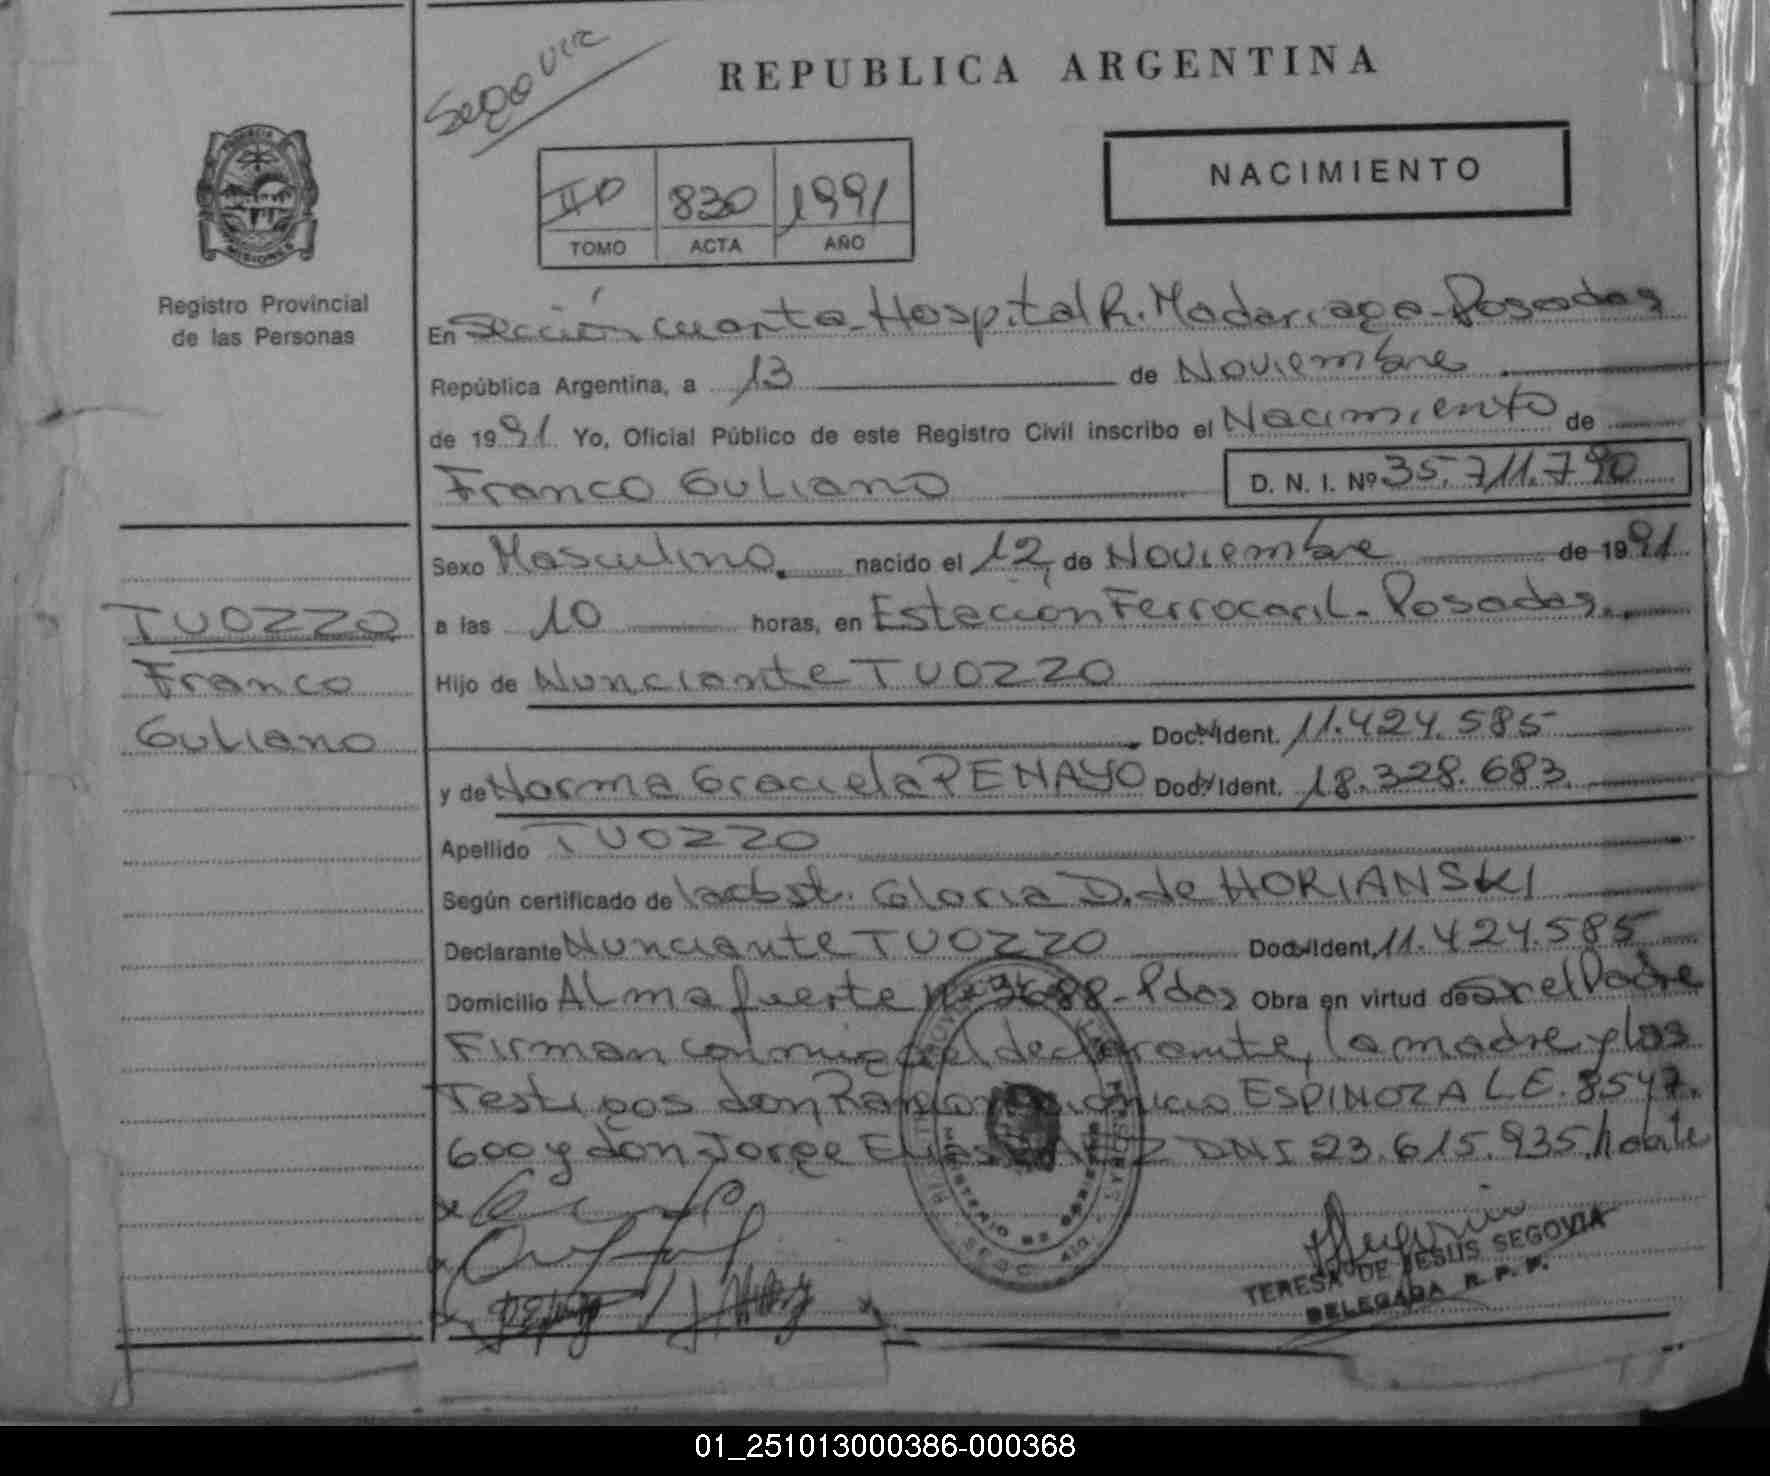 Segovia
REPUBLICA ARGENTINA
NACIMIENTO
II D 830 1991
TOMO ACTA AÑO
Registro Provincial
de las Personas
En Sección cuarta-Hospital R. Madariaga-Posadas
República Argentina, a 13 de Noviembre
de 1991 Yo, Oficial Público de este Registro Civil inscribo el Nacimiento de
Franco Guliano D. N. I. Nº 35.711.790
Sexo Masculino. nacido el 12, de Noviembre de 1991
TUOZZO
Franco
Guliano
a las 10 horas, en Estación Ferrocaril-Posadas.
Hijo de Nunciante TUOZZO
Doc. Ident. 11.424.585
y de Norma Graciela PENAYO Doc. Ident. 18.328.683.
Apellido TUOZZO
Según certificado de la obst. Gloria D. de HORIANSKI
Declarante Nunciante TUOZZO Doc. Ident. 11.424.585
Domicilio Almafuerte Nº 3688-Pdas Obra en virtud de ser el Padre
Firman conmigo el declarante, la madre y los
Testigos don Ramón ESPINOZA L.E. 8547.
600 y don Jorge Elias DNI 23.615.935, hábile
MINISTERIO DE GOBIERNO
TERESA DE JESUS SEGOVIA
DELEGADA R. P. P.
01_251013000386-000368